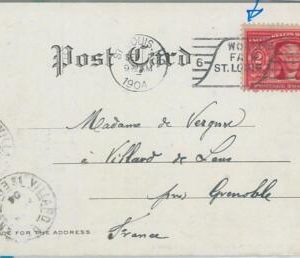 Post Card
ST. LOUIS,
1904
6
WO
FAI
ST. LOUIS
Madame de
à Villard de Lans
près Grenoble
France
VILLARD
04
FOR THE ADDRESS